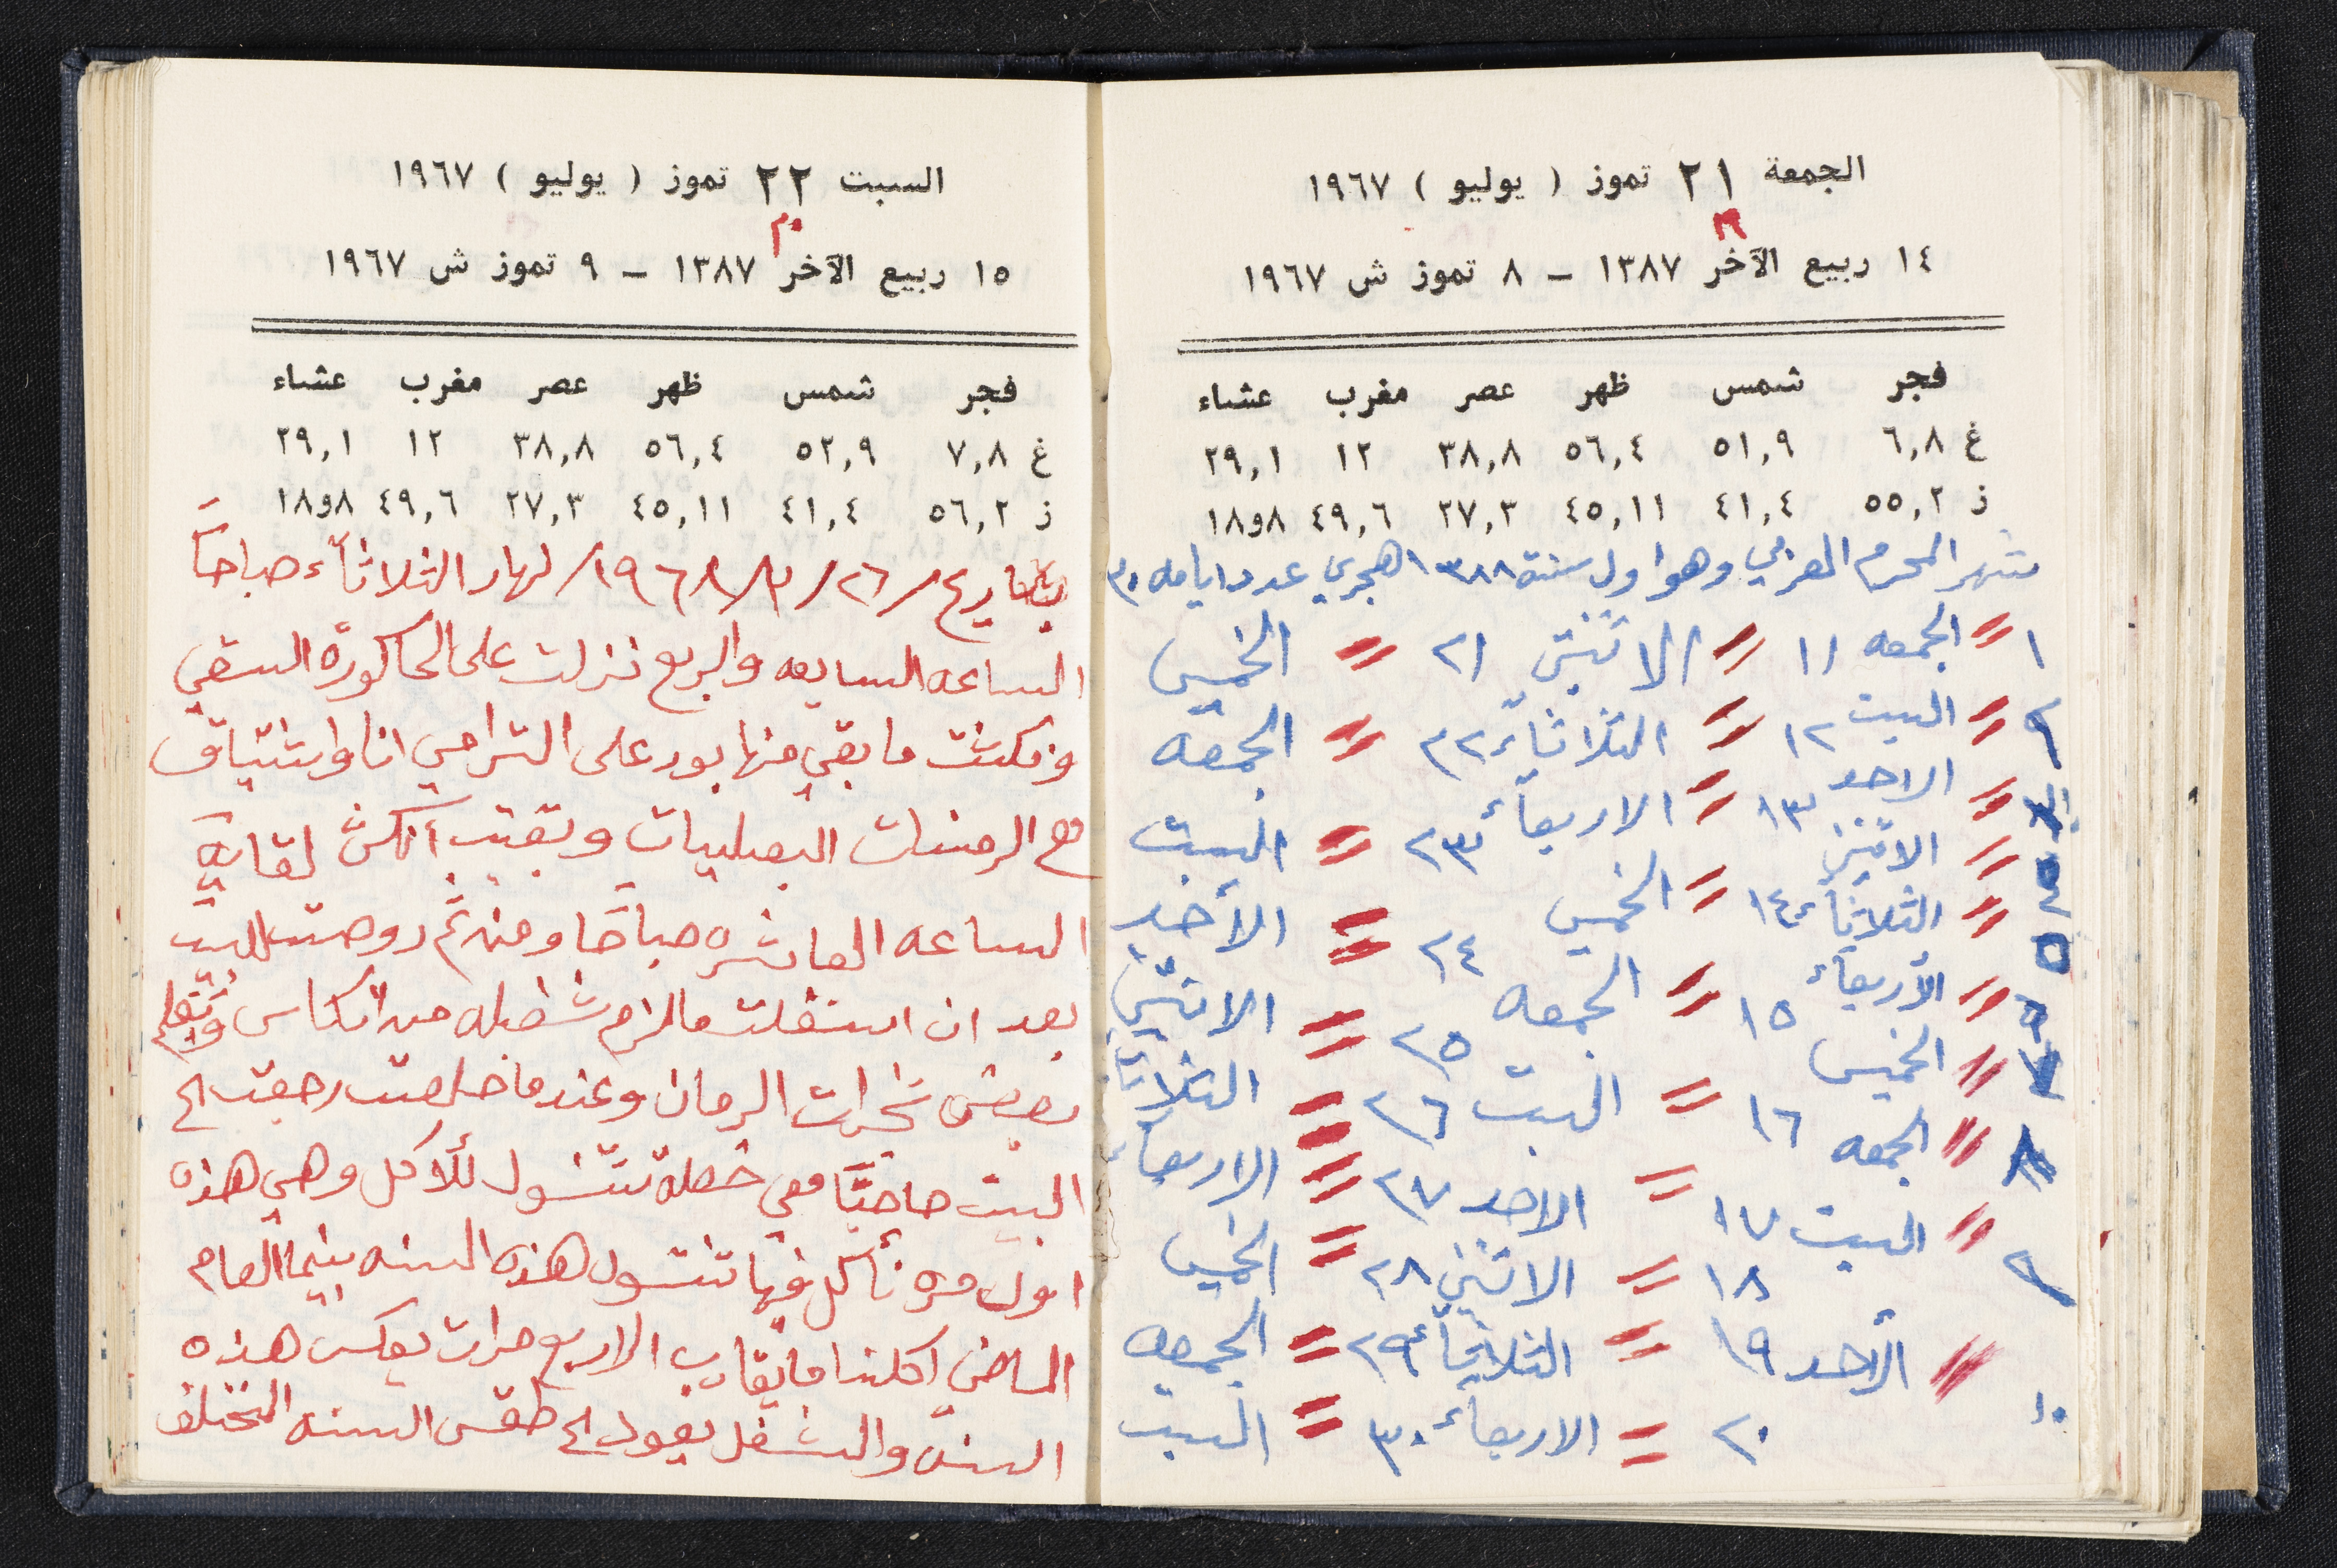 الجمعة ٢١ تموز ( يوليو ) ١٩٦٧
١٤ ربيع الآخر ١٣٨٧ – ٨ تموز ش ١٩٦٧
فجر شمس ظهر عصر مغرب عشاء
غ ٦,٨ ٥١,٩ ٥٦,٤ ٣٨,٨ ١٢ ٢٩,١
ز ٥٥,٢ ٤١,٤ ٤٥,١١ ٢٧,٣ ٤٩,٦ ١٨و٨
شهر المحرم العربي وهو اول سنة ١٣٨٨ هجري عدد ايامه ٣٠
١ = الجمعه ١١ = الاثنين ٢١ = الخميس
٢ = السبت ١٢ = الثلاثاء ٢٢ = الجمعه
= الاحد ١٣ = الاربعاء ٢٣ = السبت
= الاثنين
= الثلاثاء ١٤ = الخميس ٢٤ = الأحد
٥ = الأربعاء ١٥ = الجمعه ٢٥ = الاثنين
= الخميس ١٦ = السبت ٢٦ = الثلاثاء
٨ = الجمعه ١٧ = الاحد ٢٧ = الاربعاء
٩ = السبت ١٨ = الاثنين ٢٨ = الخميس
١٠ = الأحد ١٩ = الثلاثاء ٢٩ = الجمعه
٢٠ = الاربعاء ٣٠ = السبت
السبت ٢٢ تموز ( يوليو ) ١٩٦٧
١٥ ربيع الآخر ١٣٨٧ – ٩ تموز ش ١٩٦٧
فجر شمس ظهر عصر مغرب عشاء
غ ٧,٨ ٥٢,٩ ٥٦,٤ ٣٨,٨ ١٢ ٢٩,١
ز ٥٦,٢ ٤١,٤ ٤٥,١١ ٢٧,٣ ٤٩,٦ ١٨و٨
بتاريخ /٢٦/٣/١٩٦٨/ نهار الثلاثاء صباحاً
الساعه السابعه والربع نزلت على الحاكورة السقي
ونكشت ما بقي منها بور على الترامي انا واشتياق
مع الرمنات البعليات وبقيت أنكش لغاية
الساعه العاشره صباحًا ومن ثم روحت للبيت
بعد ان اشتغلت مالزم شغله من انكاس وتقليم
بعض شجرات الرمان وعندما خلصت رجعت الى
البيت صاحبًا معي خصلة تتشول للأكل وهي هذه
اول مره نأكل فيها تتشول هذه السنه بينما العام
الماضي اكلنا ما يقارب الاربع مرات بعكس هذه
السنه والشغل يعود الى طقس السنه المختلف